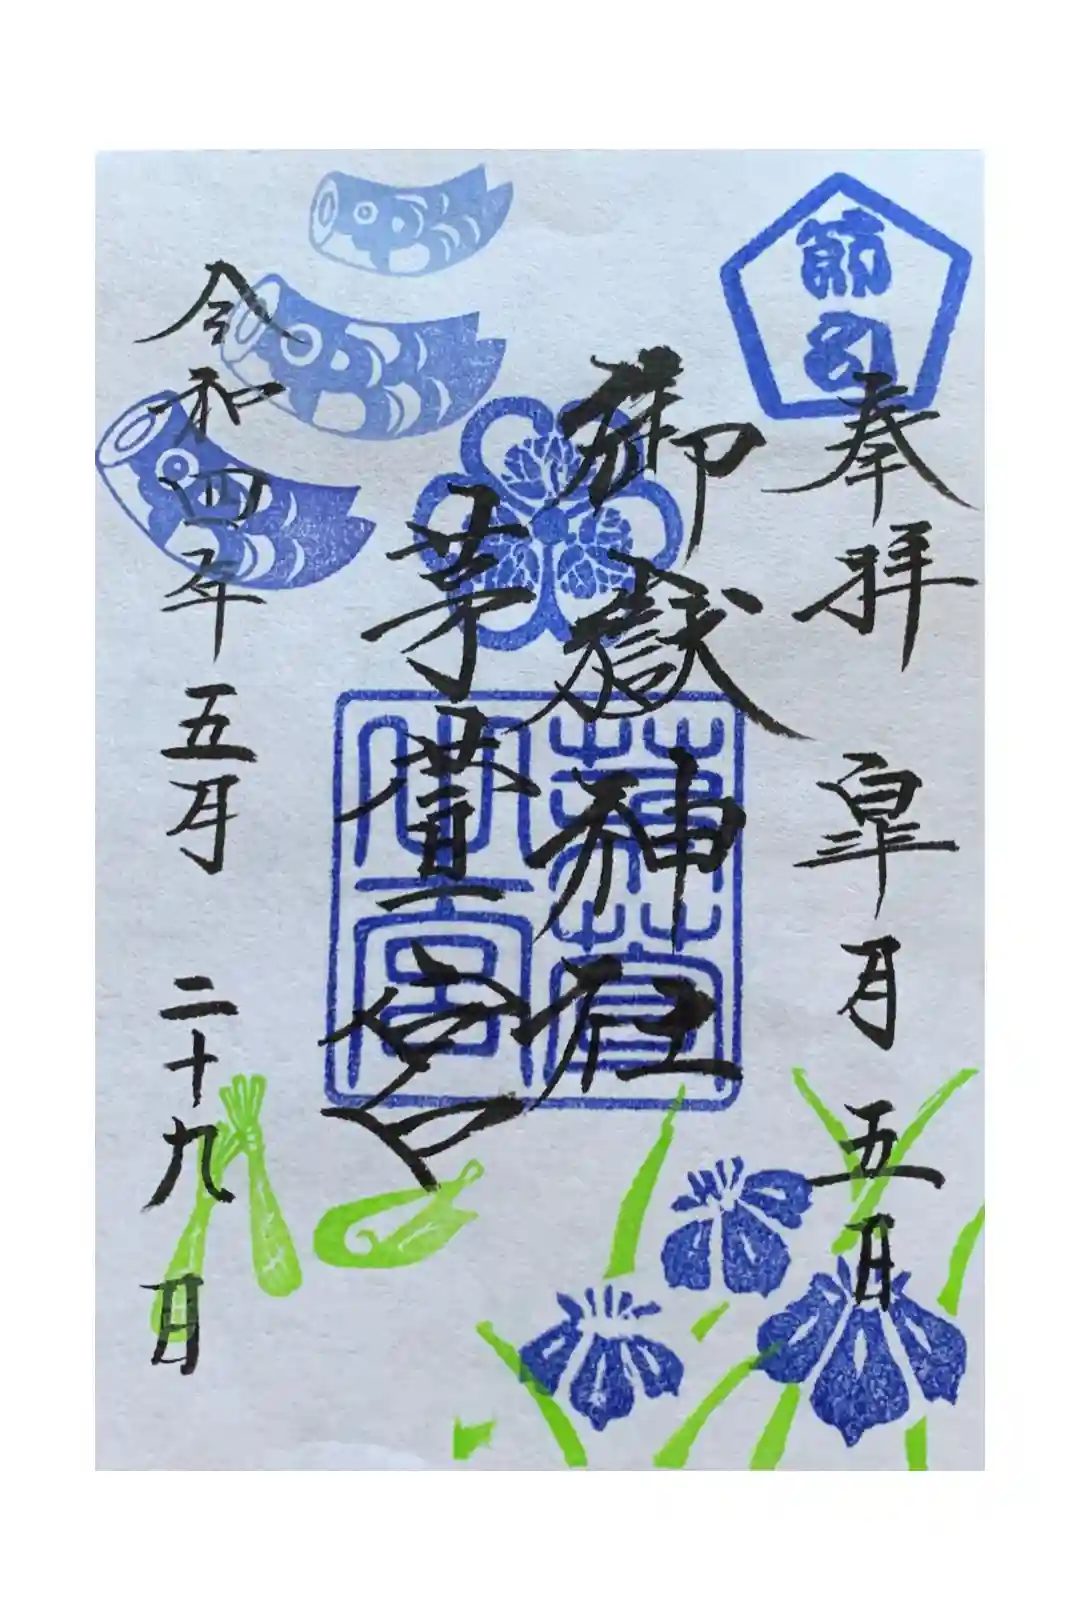 節句
奉拝 皐月 五日
御嶽神社
茅萱宮
茅萱
之宮
令和四年 五月 二十九日